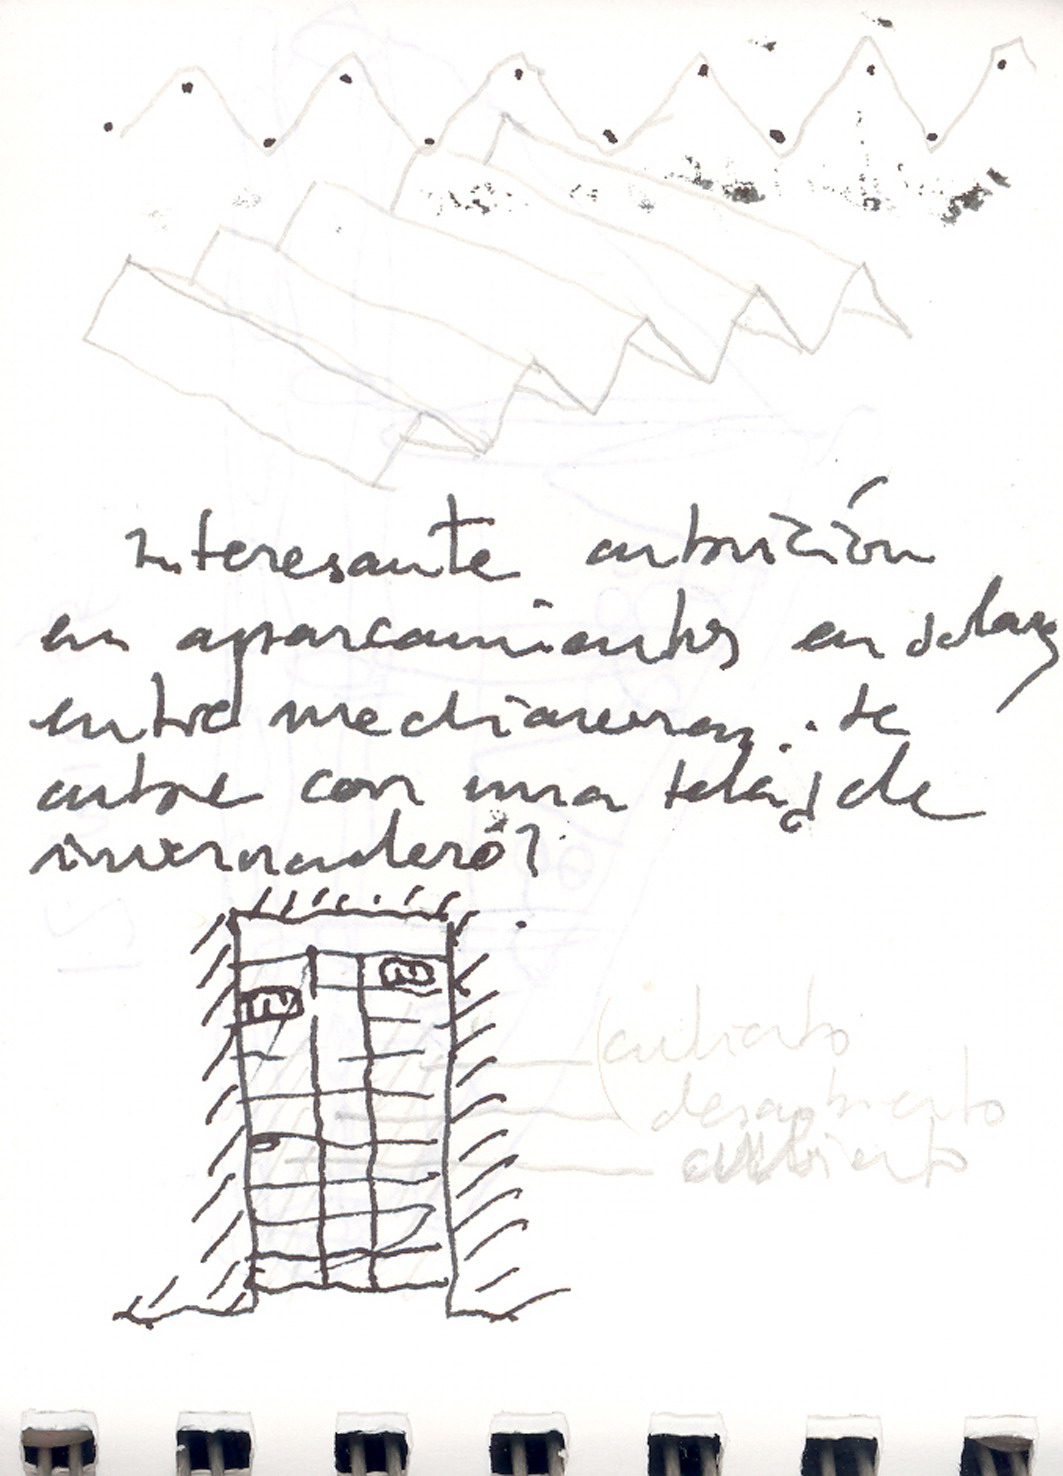 Interesante cubrición
en aparcamientos en solares
entre medianeras. Se
cubre con una tela ¿de
invernadero?
cubierto
descubierto
cubierto